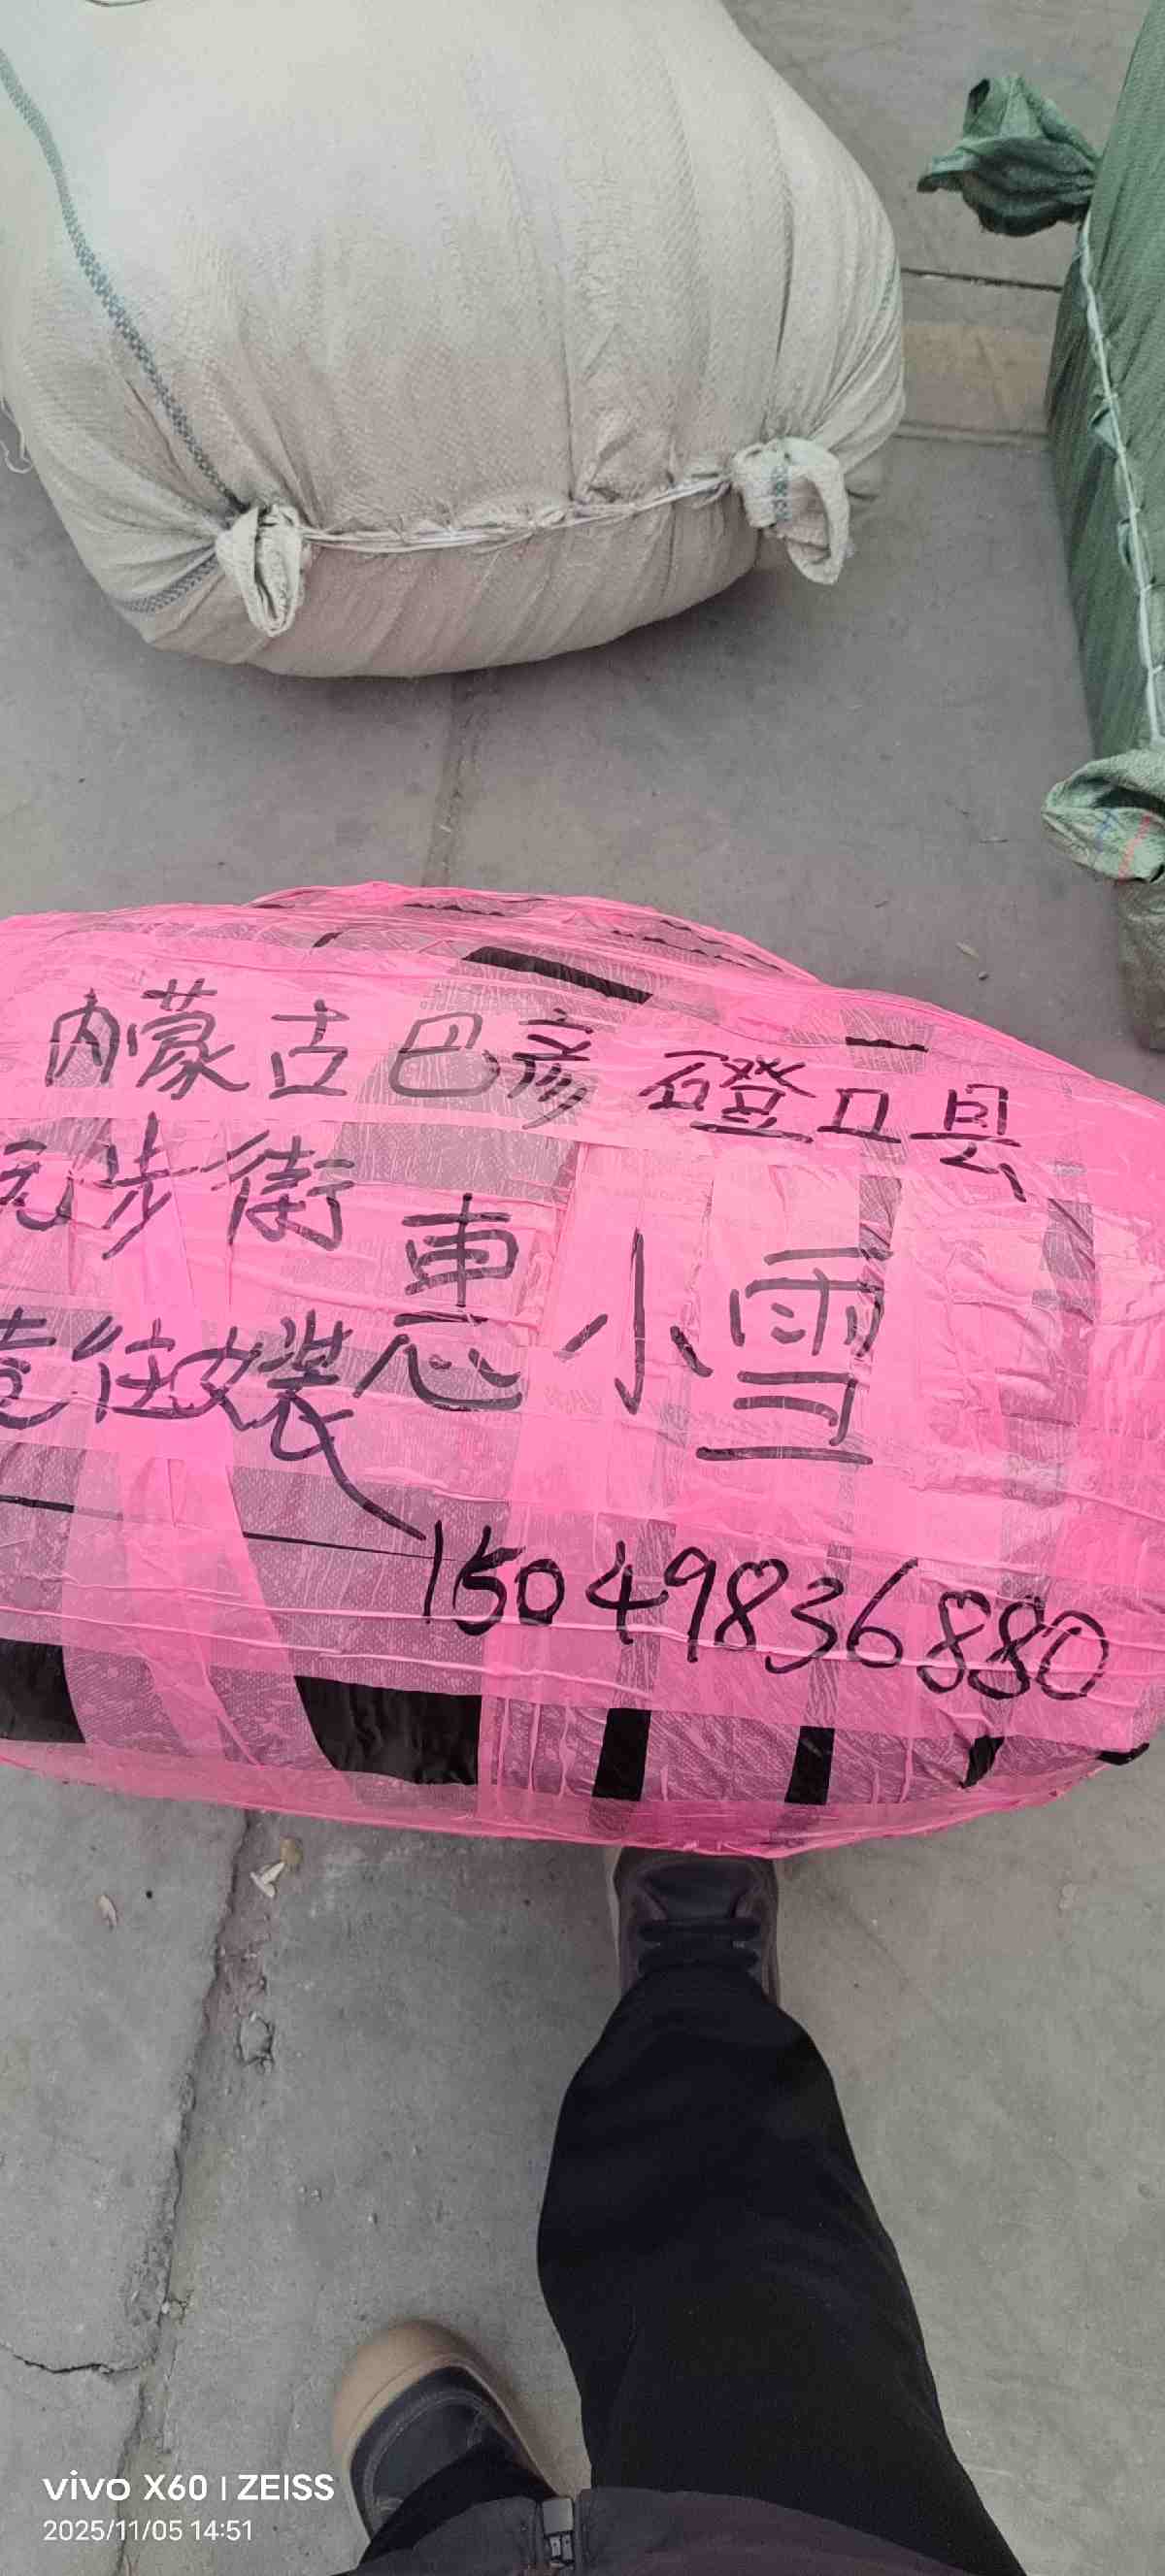 内蒙古巴彦磴口县
元步街
壹佳皮裝 惠 小雪
15049836880
vivo X60 | ZEISS
2025/11/05 14:51